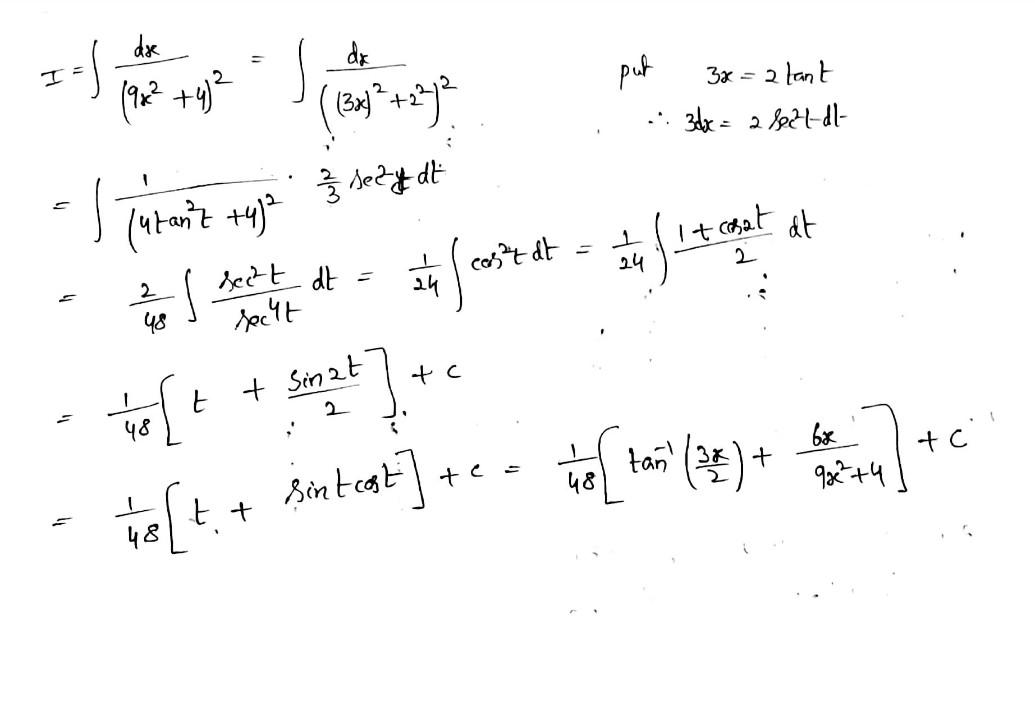 I = ∫ dx / (9x² + 4)² = ∫ dx / ((3x)² + 2²)² put 3x = 2 tan t
∴ 3dx = 2 sec²t dt
= ∫ 1 / (4tan²t + 4)² · 2/3 sec²t dt
= 2/48 ∫ sec²t / sec⁴t dt = 1/24 ∫ cos²t dt = 1/24 ∫ (1 + cos2t) / 2 dt
= 1/48 [ t + sin2t / 2 ] + c
= 1/48 [ t + sin t cos t ] + c = 1/48 [ tan⁻¹ (3x/2) + 6x / (9x² + 4) ] + C